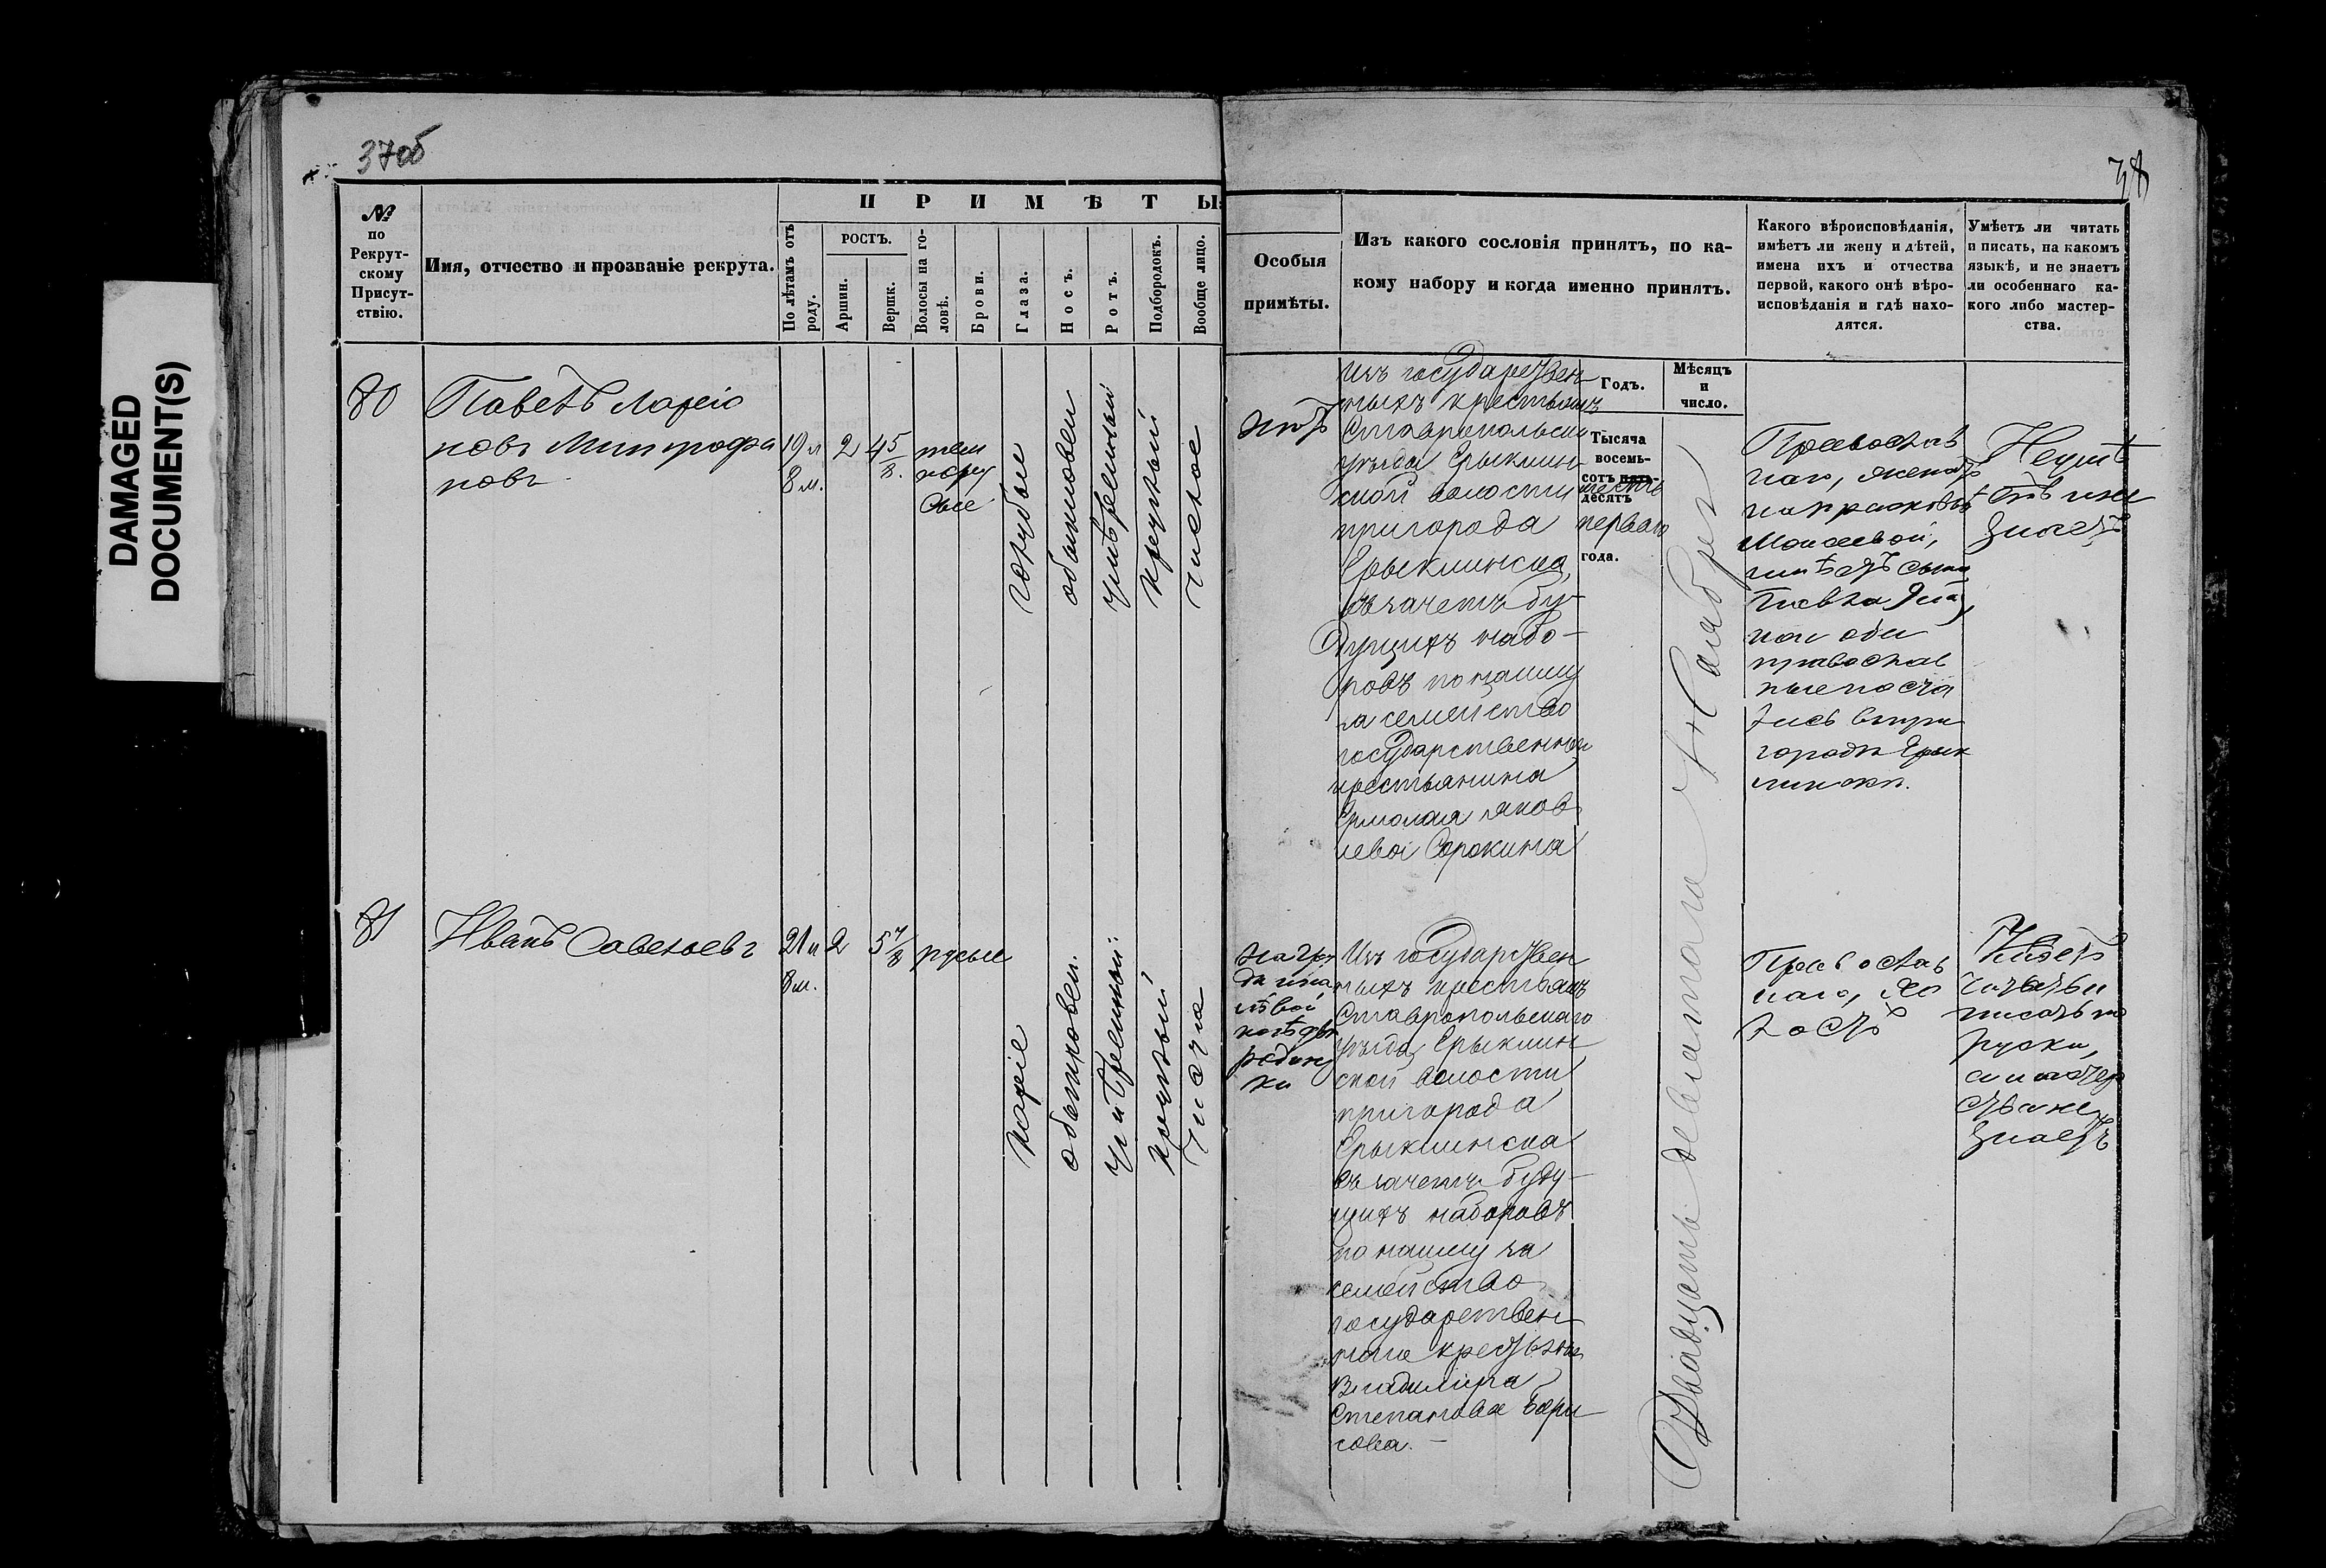 37об
38
DAMAGED
DOCUMENT(S)
№
по
Рекрут-
скому
Присут-
ствію.
Имя, отчество и прозваніе рекрута.
ПРИМѢТЫ
По лѣтамъ отъ
роду.
РОСТЪ.
Аршин.
Вершк.
Волосы на го-
ловѣ.
Брови.
Глаза.
Носъ.
Ротъ.
Подбородокъ.
Вообще лицо.
Особыя
примѣты.
Изъ какого сословія принятъ, по ка-
кому набору и когда именно принятъ.
Какого вѣроисповѣданія,
имѣетъ ли жену и дѣтей,
имена ихъ и отчества
первой, какого онѣ вѣро-
исповѣданія и гдѣ нахо-
дятся.
Умѣетъ ли читать
и писать, на какомъ
языкѣ, и не знаетъ
ли особеннаго ка-
кого либо мастер-
ства.
Годъ.
Мѣсяцъ
и
число.
80
Павелъ Ларіо
новъ Митрофа
новъ
19 л
8 м.
2
4 5/8.
темно
русые
голубые
обыкновен
умѣренный
круглый
чистое
нѣтъ
Изъ государствен
ныхъ крестьянъ
Ставропольска
уѣзда Ерыклин-
ской волости
пригорода
Ерыклинска,
въ зачетъ бу-
дущихъ набо-
ровъ по найму
за семейство
государственна
крестьянина
Ермолая Яков
лева Сорокина
Тысяча
восемь-
сотъ пять-
десятъ
шесть
перваго
года.
Двадцать девятаго Ноября
Православ
наго, женатъ
на
Моисеевой,
имѣетъ сына
Павла
они
православ
ные оста
лись въ при
городѣ Ерык
линскѣ.
Неумѣ
етъ и не
знаетъ
81
Иванъ Савельевъ
21 л
8 м.
2
5 7/8
русые
каріе
обыкновен.
умѣренный
круглый
чистое
на гру
ди и на
лѣвой
ногѣ
родин
ки
Изъ государствен
ныхъ крестьянъ
Ставропольскаго
уѣзда, Ерыклин
ской волости
пригорода
Ерыклинска
въ зачетъ буду-
щихъ наборовъ
по найму за
семейство
государствен
наго крестьяни
Владимира
Степанова Бори
сова.
Православ
наго, хо
лостъ
Умѣетъ
читать и
писать по
руски,
а мастер
ства не
знаетъ